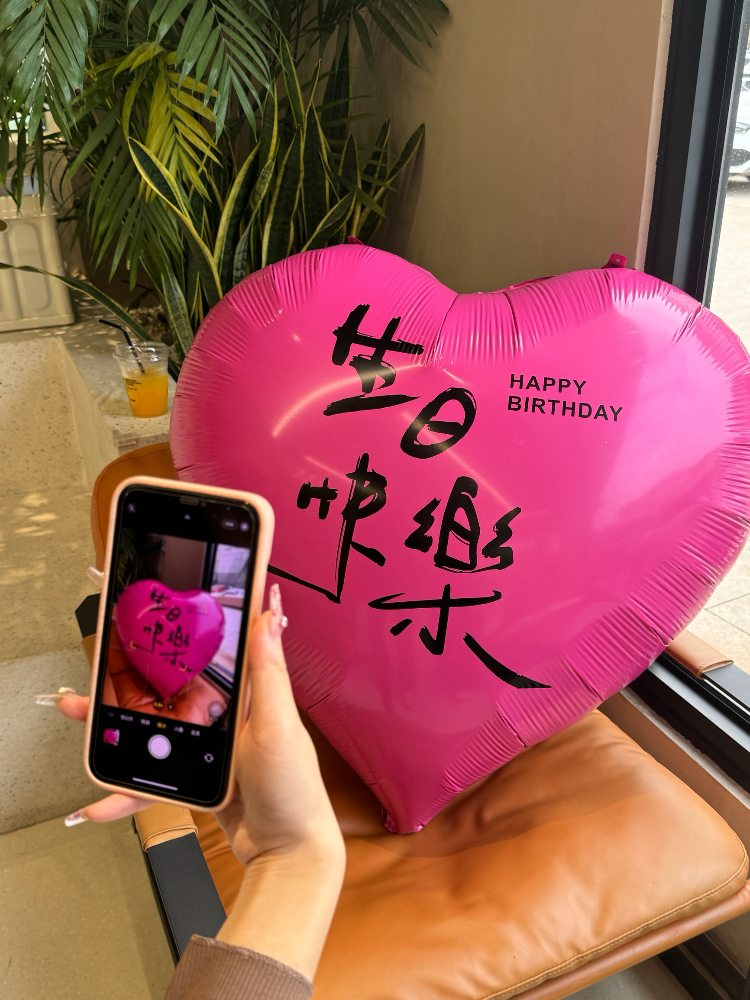 生日
快樂
HAPPY
BIRTHDAY
生日
快樂